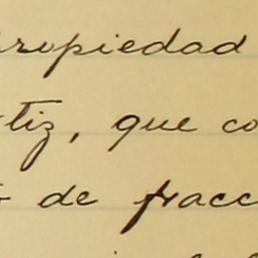 propiedad
tiz, que co
de fracc